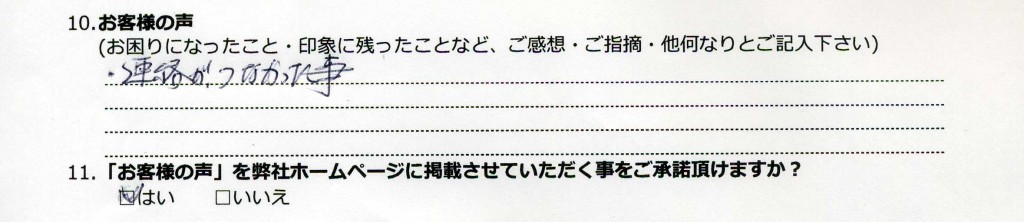 10.お客様の声
(お困りになったこと・印象に残ったことなど、ご感想・ご指摘・他何なりとご記入下さい)
・連絡がつながった事
11.「お客様の声」を弊社ホームページに掲載させていただく事をご承諾頂けますか？
☑はい □いいえ